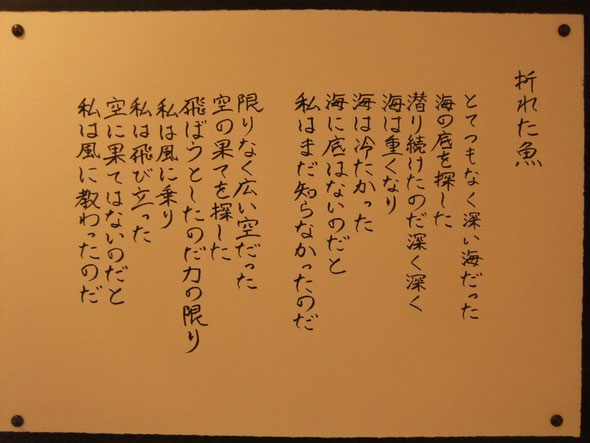 折れた魚
とてつもなく深い海だった
海の底を探した
潜り続けたのだ深く深く
海は重くなり
海は冷たかった
海に底はないのだと
私はまだ知らなかったのだ
限りなく広い空だった
空の果てを探した
飛ぼうとしたのだ力の限り
私は風に乗り
私は飛び立った
空に果てはないのだと
私は風に教わったのだ